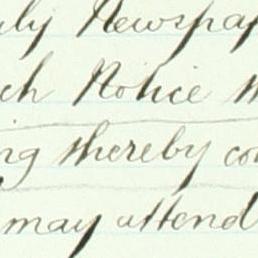 ily Newspap
ch Notice
ng thereby co
may attend